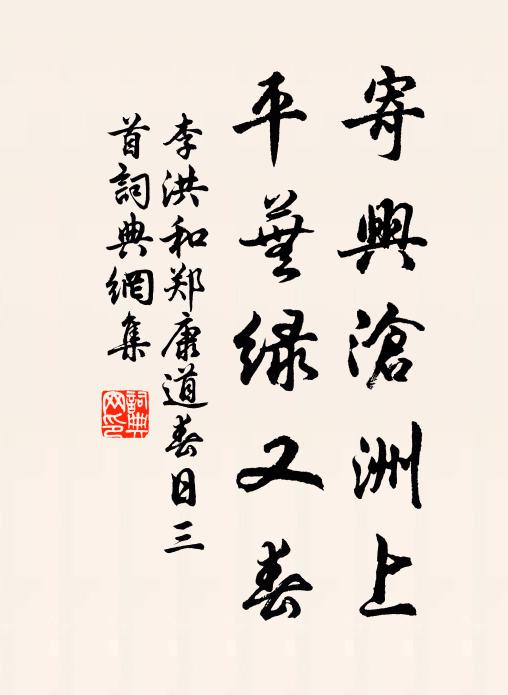 寄興滄洲上
平蕪緑又春
李洪和郑康道春日三
首詞典網集
詞典
网印